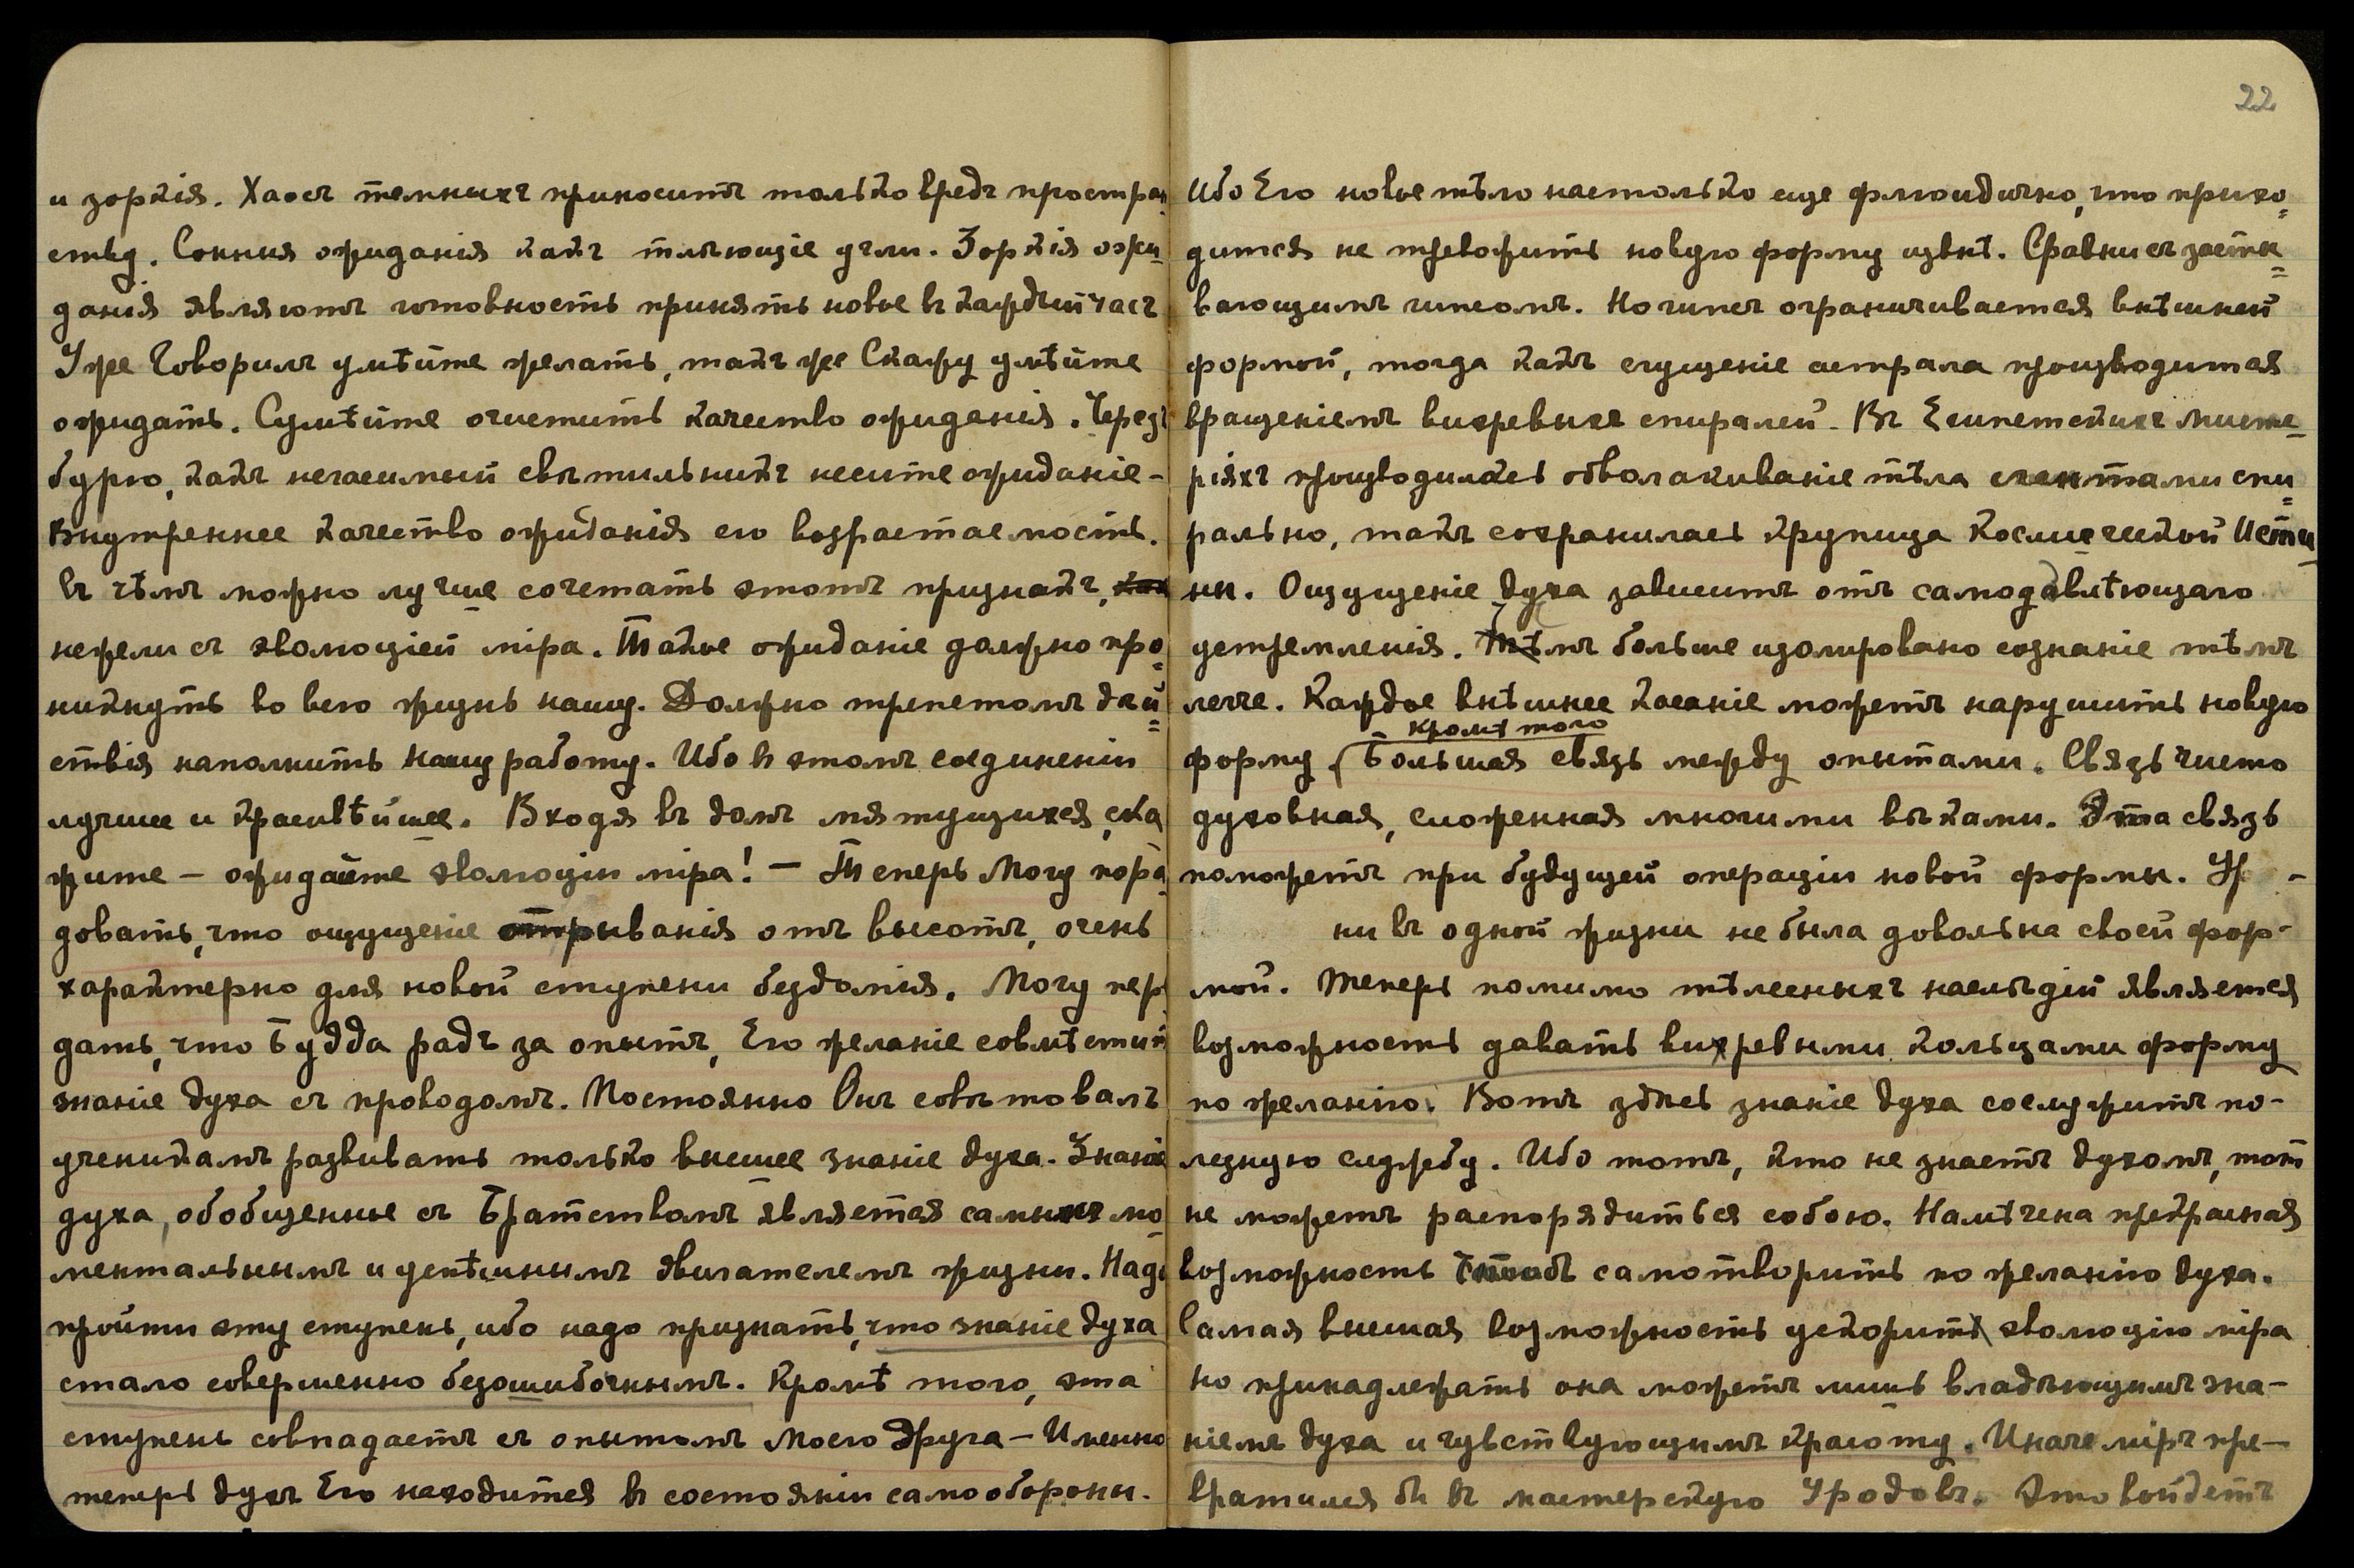 и зоркія. Хаосъ темныхъ приноситъ только вредъ простран
ству. Сонныя ожиданія какъ тлѣющіе угли. Зоркія ожи=
данія являютъ готовность принять новое въ каждый часъ
Уже Говорилъ умѣйте желать, такъ же Скажу умѣйте
ожидать. Сумѣйте очистить качество ожиданія. Черезъ
бурю, какъ негасимый свѣтильникъ несите ожиданіе –
Внутреннее качество ожиданія его возрастаемость.
въ чѣмъ можно лучше сочетать этотъ признакъ,
нежели съ эволюціей міра. Такое ожиданіе должно про=
никнуть во всю жизнь нашу. Должно трепетомъ дѣй=
ствія наполнить нашу работу. Ибо въ этомъ соединеніи
лучшее и красивѣйшее. Входя въ домъ мятущихся, ска
жите – ожидайте эволюціи міра! – Теперь Могу пора
довать, что ощущеніе отрыванія отъ высотъ, очень
характерно для новой ступени бездомія. Могу пере
дать, что Будда радъ за опытъ, Его желаніе совмѣстить
знаніе духа съ проводомъ. Постоянно Онъ совѣтовалъ
ученикамъ развивать только высшее знаніе духа. Знаніе
духа, обобщенное съ Братствомъ является самымъ мо
ментальнымъ и успѣшнымъ двигателемъ жизни. Надо
пройти эту ступень, ибо надо признать, что знаніе духа
стало совершенно безошибочнымъ. Кромѣ того, эта
ступень совпадаетъ съ опытомъ Моего Друга – Именно
теперь духъ Его находится въ состояніи самообороны.
22
Ибо Его новое тѣло настолько еще флюидично, что прихо=
дится не тревожить новую форму извнѣ. Сравни съ засты=
вающимъ гипсомъ. Но гипсъ ограничивается внѣшней
формой, тогда какъ сгущеніе астрала производится
вращеніемъ вихревыхъ спиралей. Въ Египетскихъ мисте=
ріяхъ производилось обволакиваніе тѣла лентами спи=
рально, такъ сохранилась крупица Космической Исти
ны. Ощущеніе духа зависитъ отъ самодавлѣющаго
устремленія. Чѣмъ больше изолировано сознаніе тѣмъ
легче. Каждое внѣшнее касаніе можетъ нарушить новую
кромѣ того
форму. Большая связь между опытами. Связь чисто
духовная, сложенная многими вѣками. Эта связь
поможетъ при будущей операціи новой формы. Ур –
ни въ одной жизни не была довольна своей фор-
мой. Теперь помимо тѣлесныхъ наслѣдій является
возможность давать вихревыми кольцами форму
по желанію. Вотъ здѣсь знаніе духа сослужитъ по-
лезную службу. Ибо тотъ, кто не знаетъ духомъ, тотъ
не можетъ распорядиться собою. Намѣчена прекрасная
возможность чтобъ самотворить по желанію духа.
Самая высшая возможность ускорить эволюцію міра
но принадлежать она можетъ лишь владѣющимъ зна-
ніемъ духа и чувствующимъ красоту. Иначе міръ пре-
вратился бы въ мастерскую Уродовъ. Это войдетъ